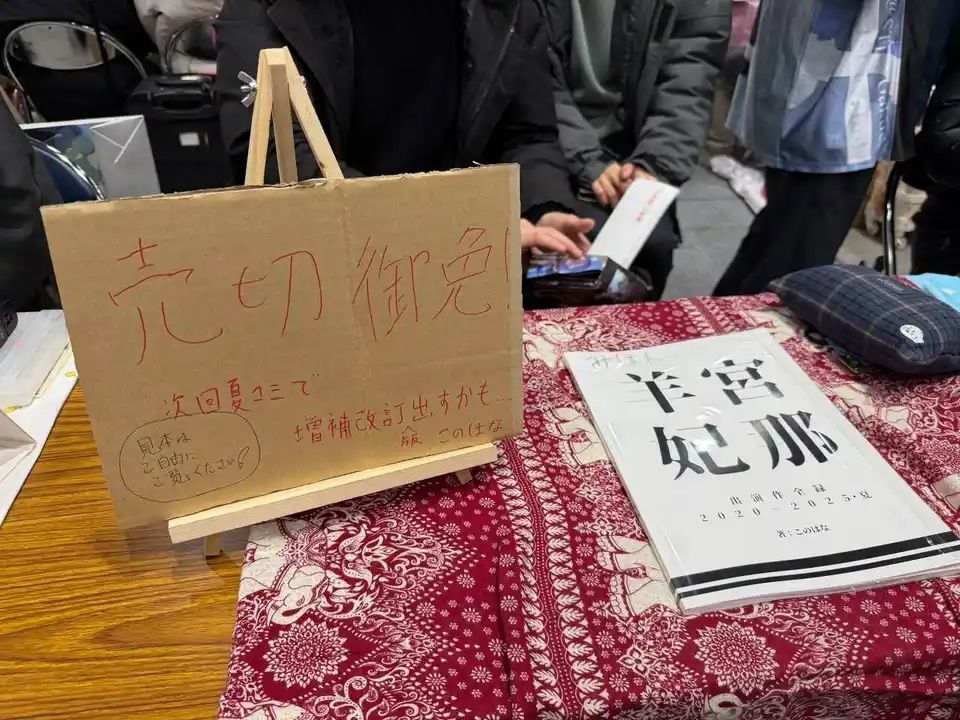 売切御免!
次回夏コミで
増補改訂出すかも...
このはな
見本は
ご自由に
ご覧ください!
みほん
羊宮
妃那
出演作全録
2020-2025・夏
著:このはな